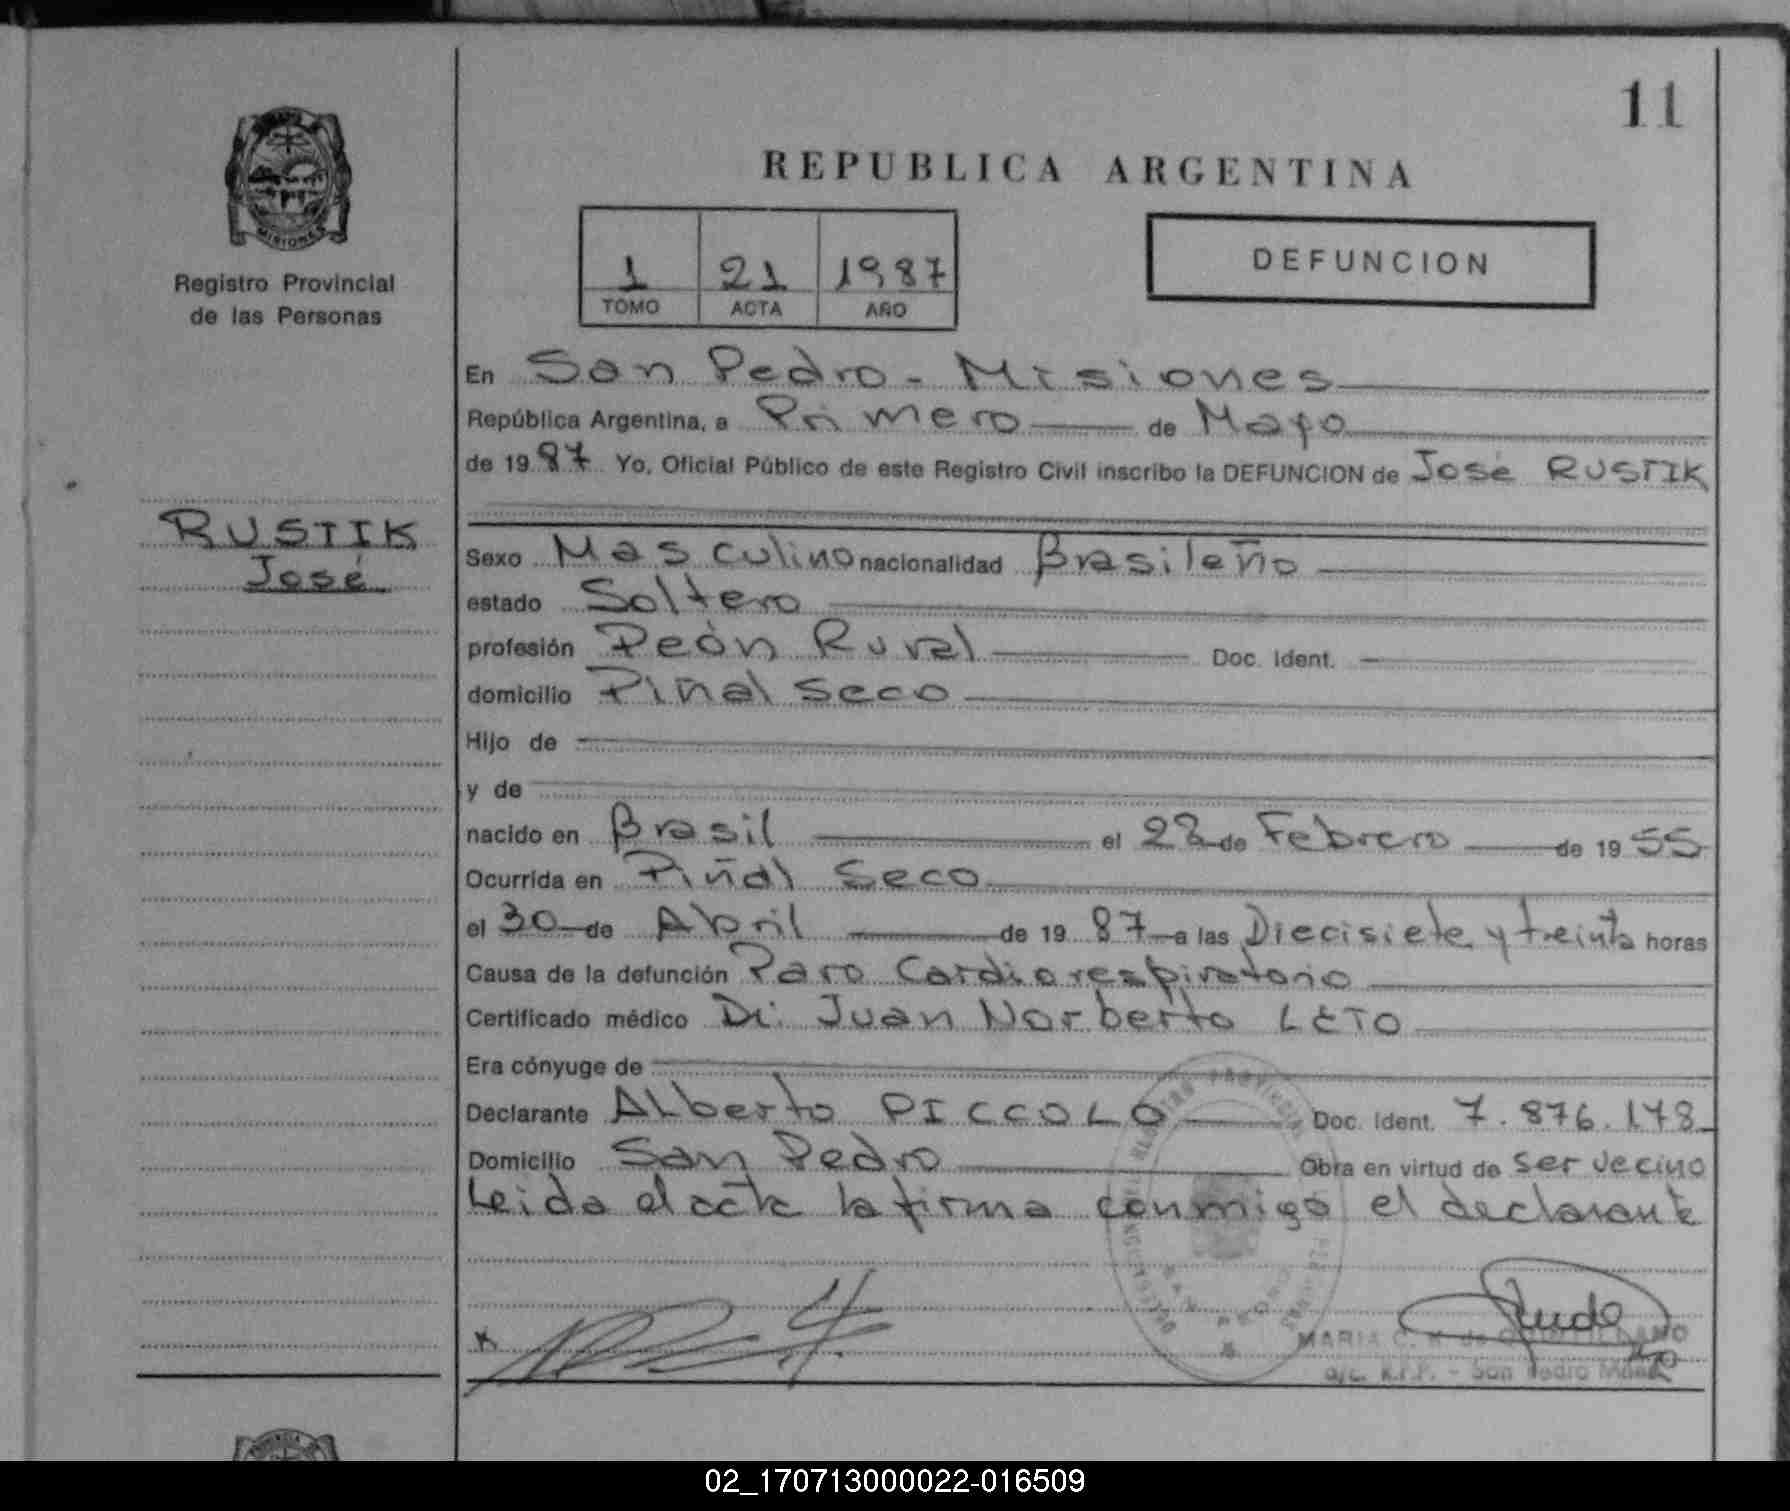 11
REPUBLICA ARGENTINA
MISIONES
Registro Provincial
de las Personas
1 21 1987
TOMO ACTA AÑO
DEFUNCION
RUSTIK
José
En San Pedro - Misiones
República Argentina, a Primero de Mayo
de 1987 Yo, Oficial Público de este Registro Civil inscribo la DEFUNCION de José RUSTIK
Sexo Masculino nacionalidad Brasileño
estado Soltero
profesión Peón Rural Doc. Ident.
domicilio Piñal Seco
Hijo de
y de
nacido en Brasil el de Febrero de 1955
Ocurrida en Piñal Seco
el 30 de Abril de 1987 a las Diecisiete y treinta horas
Causa de la defunción Paro Cardiorespiratorio
Certificado médico Dr. Juan Norberto LETO
Era cónyuge de
Declarante Alberto PICCOLO Doc. Ident. 7.876.178
Domicilio San Pedro Obra en virtud de ser vecino
Leida el acta la firma conmigo el declarante
MARIA C.
a/c. R.P.P. - San Pedro
02_170713000022-016509